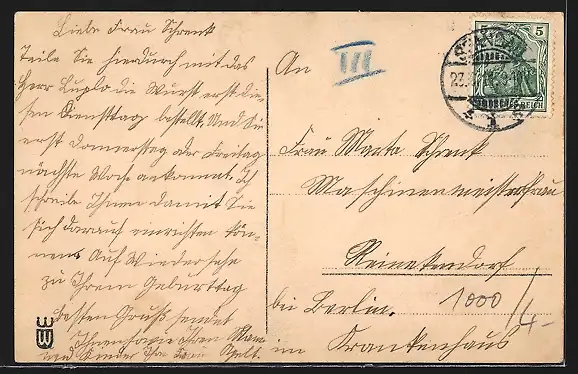 Liebe Frau Schrenk
Teile Sie hierdurch mit das
Herr Luplo die Wurst erst die-
sen Dienstag bestellt. Und Sie
erst Donnerstag oder Freitag
nächste Woch. ankommt. Ich
schreibe Ihnen damit Sie
sich darauf einrichten kön-
nen. Auf Wiedersehe
zu Ihrem Geburttag
besten Gruß sendet
Ihnen sowie Ihren Mann
und Kinder Frau
An
III
5
5
REICH
Frau Marta Schrenk
Maschinenmeisterfrau
Reinekendorf
bei Berlin.
im Krankenhaus
1000
/4-